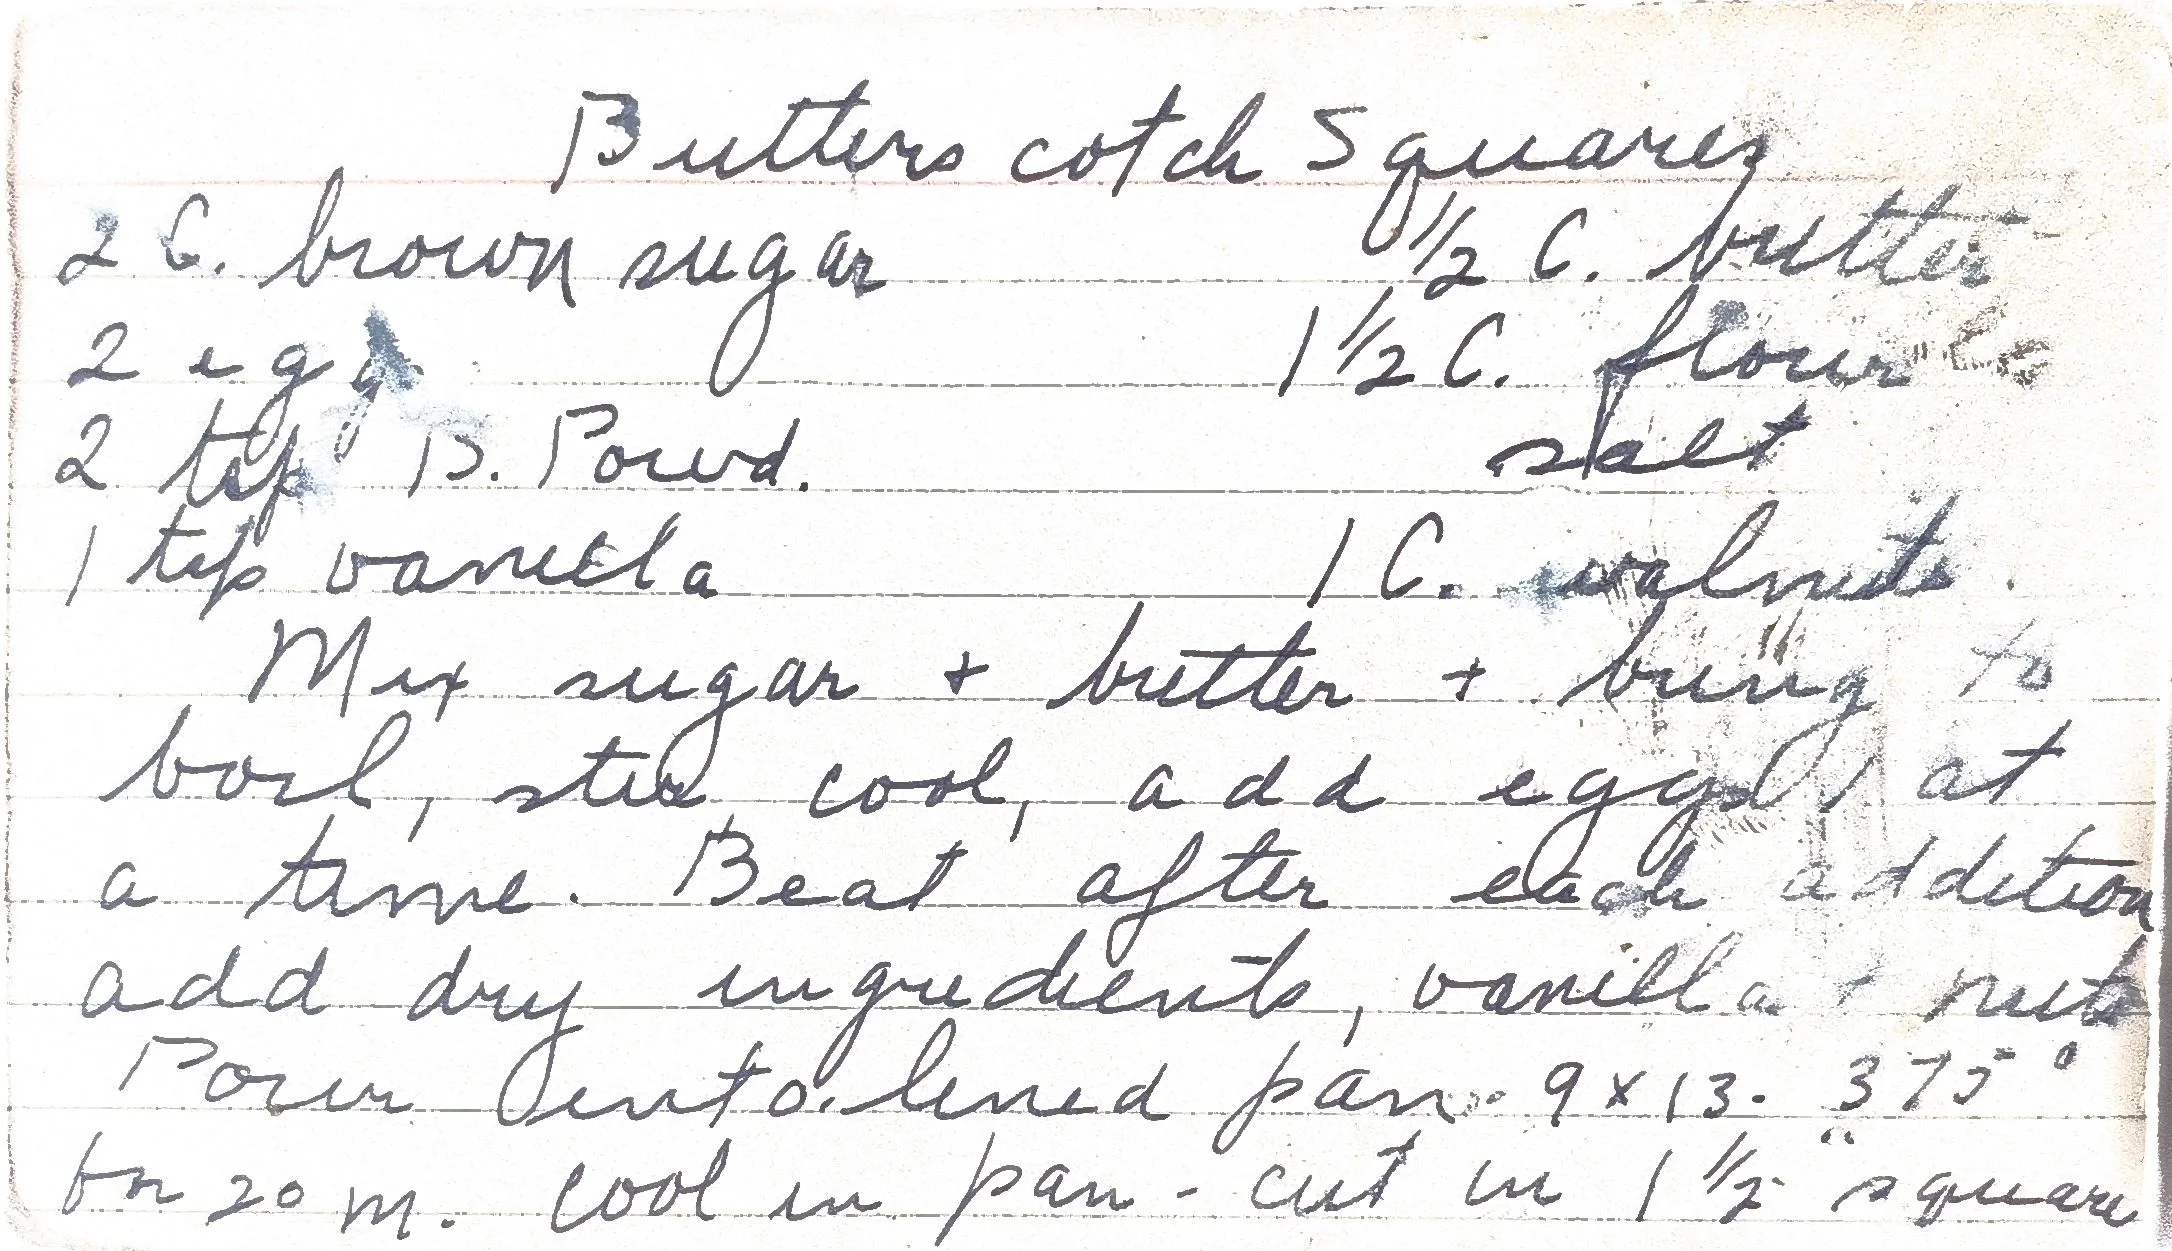 Butterscotch Squares
2 C. brown sugar 1/2 C. butter
2 egg 1 1/2 C. flour
2 tsp B. Powd. salt
1 tsp vanilla 1 C. walnuts
Mix sugar + butter + bring to
boil, stir cool, add eggs 1 at
a time. Beat after each addition
add dry ingredients, vanilla + nuts
Pour into lined pan. 9 x 13. 375°
for 20 m. Cool in pan - cut in 1 1/2" square